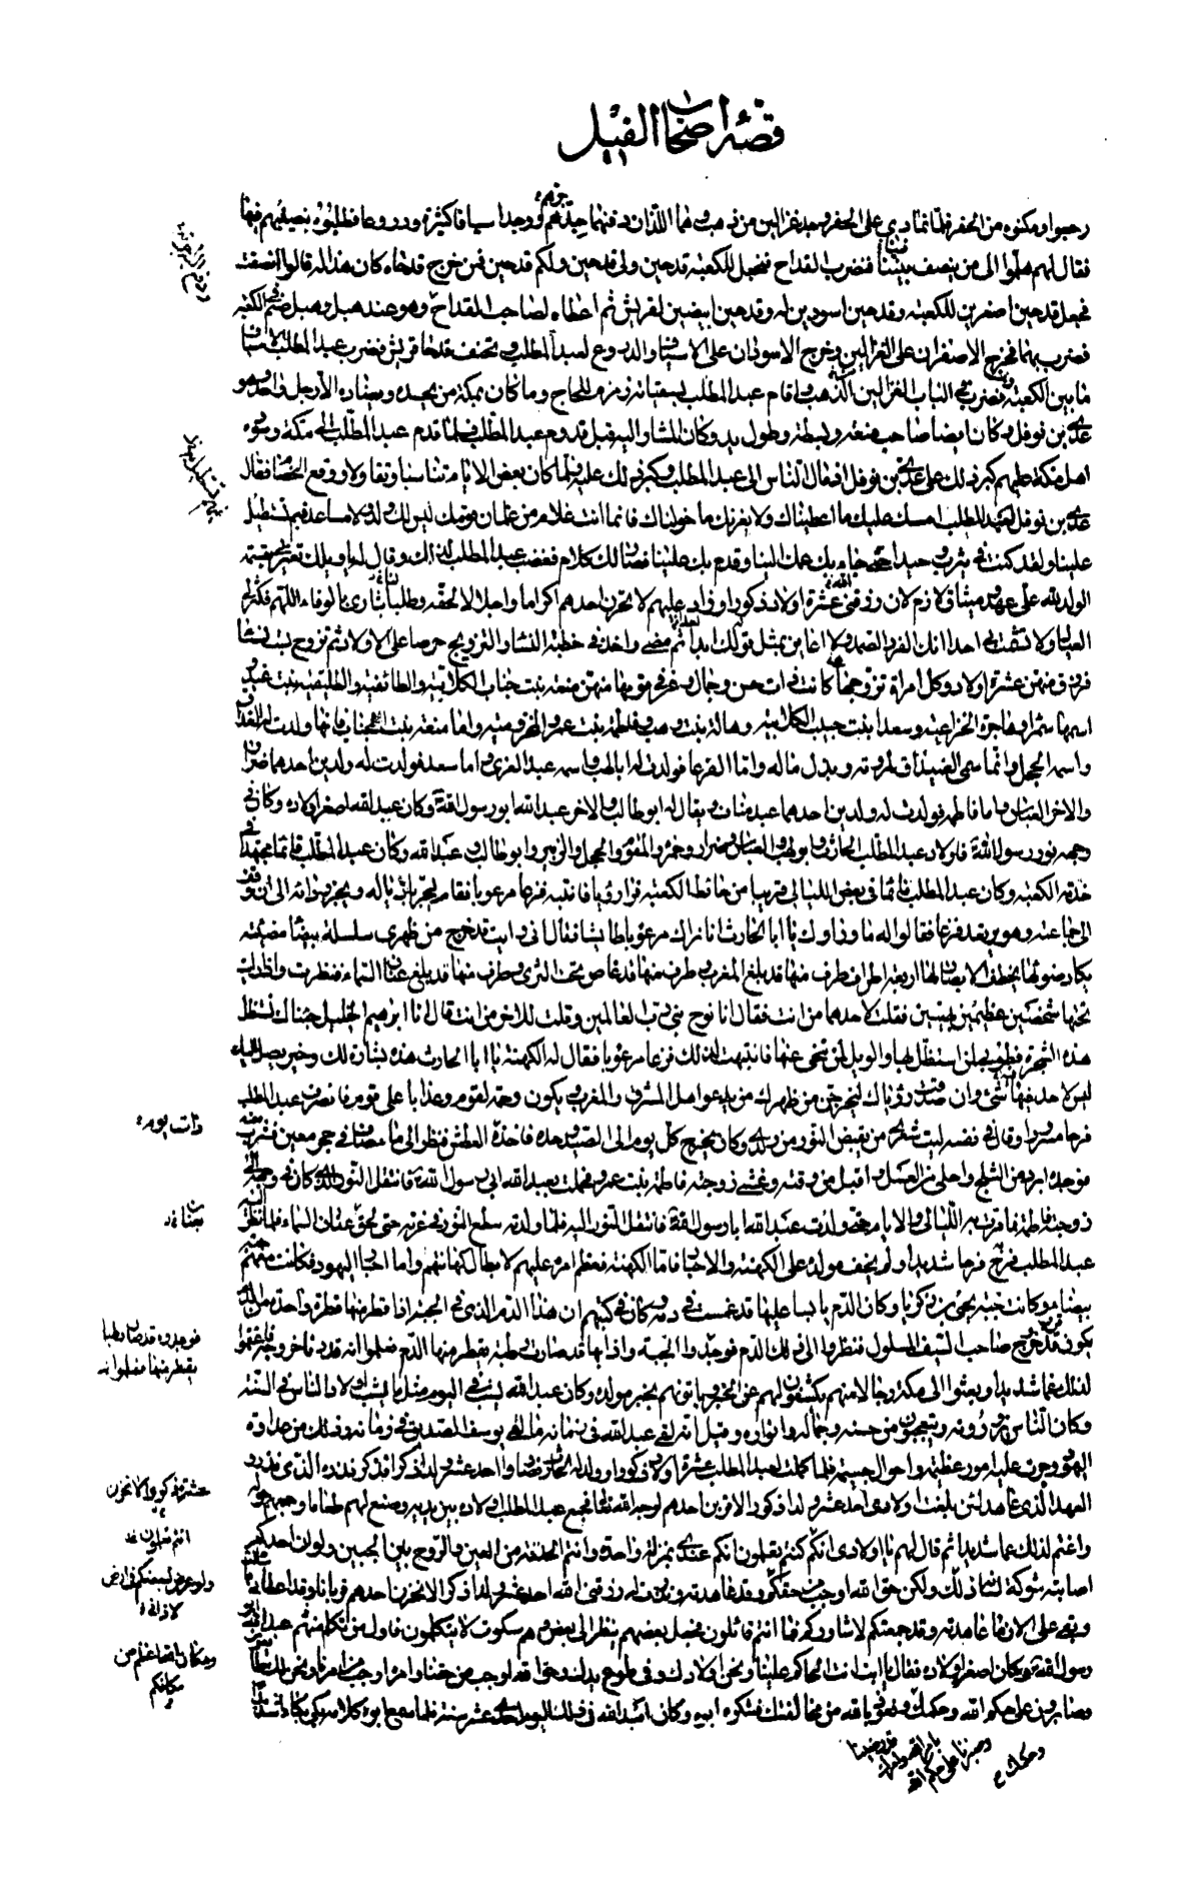 قصة اصحاب الفيل
رحبوا ومكنوه من الحفر فلما تمادى على الحفر وجد غزالين من ذهب وهما اللذان دفنهما جدهم جرهم ووجد اسيافا كثيرة ودروعا فطلبوه بنصيبهم فيها
فقال لهم هلموا الى من ينصف بيننا فنضرب القداح فنجعل للكعبة قدحين ولى قدحين ولكم قدحين فمن خرج قدحاه كان هذا له قالوا انصفت
فجعل قدحين اصفرين للكعبة وقدحين اسودين له وقدحين ابيضين لقريش ثم اعطاه لصاحب القداح وهو عند هبل وهبل صنم في الكعبة
فضرب بهما فخرج الاصفران على الغزالين وخرج الاسودان على الاسياف والدروع لعبد المطلب وتخلف قدحا قريش فضرب عبد المطلب الاسياف
ما بين الكعبة فضرب في الباب الغزالين الذهب واقام عبد المطلب بسقاية زمزم للحاج وما كان بمكة من يحسده ويضاده الا رجل واحد وهو
عدي بن نوفل وكان ايضا صاحب منعة وبسطة وطول يد وكان المشار اليه قبل قدوم عبد المطلب فلما قدم عبد المطلب الى مكة وسوده
اهل مكة عليهم كبر ذلك على عدي بن نوفل اذ مال الناس الى عبد المطلب وكبر ذلك عليه فلما كان بعض الايام تناسبا وتقاولا ووقع الخصام فقال
عدي بن نوفل لعبد المطلب امسك عليك ما اعطيناك ولا يغرنك ما خولناك فانما انت غلام من غلمان قومك ليس لك ولد ولا مساعد فبم تستطيل
علينا ولقد كنت في يثرب وحيدا حتى جاء بك عمك الينا وقدم بك علينا فصار لك كلام فغضب عبد المطلب لذلك وقال له يا ويلك تعيرني بقلة
الولد لله علي عهد وميثاق لازم لان رزقني الله عشرة اولاد ذكورا وزاد عليهم لانحرن احدهم اكراما واجلالا لحقه وطلبا بثاري بالوفاء اللهم فكثر لي
العيال ولا تشمت بي احدا انك الفرد الصمد ولا اعاين بمثل قولك ابدا ثم مضى واخذ في خطبة النساء والتزويج حرصا على الاولاد ثم تزوج بست نساء
فرزق منهن عشرة اولاد وكل امراة تزوجها كانت ذات حسن وجمال وعز في قومها منهن منعة بنت حباب الكلابية والطائفية والطليقية بنت غيدق
اسمها سمراء وهاجرة الخزاعية وسعدا بنت حبيب الكلابية وهالة بنت وهب وفاطمة بنت عمرو المخزومية واما منعة بنت الحباب فانها ولدت له الغيداق
واسمه الحجل وانما سمي الغيداق لمروته وبذل ماله واما القرعا فولدت له ابا لهب واسمه عبد العزى واما سعدا فولدت له ولدين احدهما ضرار
والاخر العباس واما فاطمة فولدت له ولدين احدهما عبد مناف ويقال له ابو طالب والاخر عبد الله ابو رسول الله وكان عبد الله اصغر اولاده وكان في
وجهه نور رسول الله فاولاد عبد المطلب الحارث وابو لهب والعباس وضرار وحمزة والمقوم والحجل والزبير وابو طالب وعبد الله وكان عبد المطلب قائما مجتهدا في
خدمة الكعبة وكان عبد المطلب نائما في بعض الليالي قريبا من حائط الكعبة فراى رؤيا فانتبه فزعا مرعوبا فقام يجر اذياله ويجر رداءه الى ان وقف
الى جماعته وهو يرتعد فزعا فقالوا له ما وراءك يا ابا الحارث انا نراك مرعوبا طائشا فقال اني رايت قد خرج من ظهري سلسلة بيضاء مضيئة
يكاد ضوئها يخطف الابصار لها اربعة اطراف طرف منها قد بلغ المغرب وطرف منها قد غاص تحت الثرى وطرف منها قد بلغ عنان السماء فنظرت واذا رايت
تحتها شخصين عظيمين بهيين فقلت لاحدهما من انت فقال انا نوح نبي رب العالمين وقلت للاخر من انت قال انا ابراهيم الخليل جئناك نستظل
هذه الشجرة فطوبى لمن استظل بها والويل لمن تنحى عنها فانتبهت لذلك فزعا مرعوبا فقال له الكهنة يا ابا الحارث هذه بشارة لك وخير يصل اليك
ليس لاحد فيها شيء وان صدقت رؤياك ليخرجن من ظهرك من يدعو اهل المشرق والمغرب ويكون رحمة لقوم وعذابا على قوم فانصرف عبد المطلب
فرحا مسرورا وقال في نفسه ليت شعري من يقبض النور من ولدي وكان يخرج كل يوم الى الصيد وحده فاخذه العطش فنظر الى ماء صاف في حجر معين فشرب منه
فوجده ابرد من الثلج واحلى من العسل واقبل من وقته وغشي زوجته فاطمة بنت عمرو فحملت بعبد الله ابي رسول الله فانتقل النور الذي كان في وجهه الى
زوجته فاطمة فما مرت بها الليالي والايام حتى ولدت عبد الله ابا رسول الله فانتقل النور اليه فلما ولدته سطع النور في غرته حتى لحق عنان السماء فلما نظر اليه
عبد المطلب فرح فرحا شديدا ولم يخف مولده على الكهنة والاحبار فاما الكهنة فعظم امره عليهم لابطال كهانتهم واما احبار اليهود فكانت معهم جبة
بيضاء وكانت جبة يحيى بن زكريا وكان الدم يابسا عليها قد غمست في دمه وكان في كتبهم ان هذا الدم الذي في الجبة اذا قطر منها قطرة واحدة من الدم
يكون قد قرب خروج صاحب السيف المسلول فنظروا الى ذلك الدم فوجدوا الجبة واذا بها قد صارت رطبة يقطر منها الدم فعلموا انه قد دنا خروجه فاغتموا
لذلك غما شديدا وبعثوا الى مكة رجالا منهم يكشفون لهم عن الخبر وياتونهم بخبر مولده وكان عبد الله يشب في اليوم مثل ما يشب اولاد الناس في السنة
وكان الناس يزورونه ويتعجبون من حسنه وجماله وانواره وقيل انه لقي عبد الله في زمانه ما لقي يوسف الصديق في زمانه وذلك من عداوة
اليهود وجرت عليه امور عظيمة واحوال جسيمة فلما كملت لعبد المطلب عشرة اولاد ذكورا وولد له الحارث فصاروا احد عشر ولدا ذكرا فذكر نذره الذي نذره و
العهد الذي عاهد لئن بلغت اولادي احد عشر ولدا ذكورا لاقربن احدهم لوجه الله تعالى فجمع عبد المطلب اولاده بين يديه وصنع لهم طعاما وجمعهم حوله
واغتم لذلك غما شديدا ثم قال لهم يا اولادي انكم كنتم تعلمون انكم عندي بمنزلة واحدة وانتم الحدقة من العين والروح بين الجبين ولو ان احدكم
اصابته شوكة لساءني ذلك ولكن حق الله اوجب من حقكم وقد عاهدته ونذرت له متى رزقني الله احد عشر ولدا ذكرا لانحرن احدهم قربانا وقد اعطاني ما سالته
وبقي علي الان ما عاهدته وقد جمعتكم لاشاوركم فما انتم قائلون فجعل بعضهم ينظر الى بعض وهم سكوت لا يتكلمون فاول من تكلم منهم عبد الله ابو
رسول الله وكان اصغر اولاده فقال يا ابت انت الحاكم علينا ونحن اولادك وفي طوع يدك وحق الله اوجب من حقنا وامره اوجب من امرنا ونحن لك طائعون
وصابرون على حكم الله وحكمك ونعوذ بالله من مخالفتك فشكره ابوه وكان لعبد الله في ذلك اليوم احدى عشر سنة فلما سمع ابوه كلامه بكى بكاء شديدا
ذات يوم
فوجدوه قد صار رطبا
يقطر منها فعلموا انه
عشرة ذكورا لانحرن
انتم تعلمون
ومكان باغناغلم من
مكانكم
وصبرنا على حكم الله
وحكمك